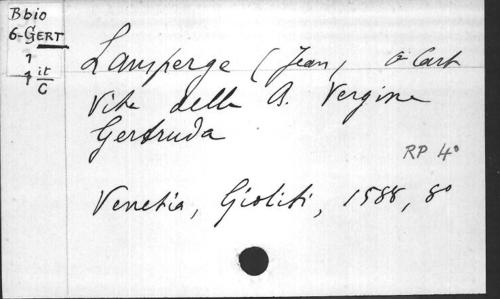 Bbio
6-GERT
1
1 it
C
Lansperge (Jean) o Cart
Vita della B. Vergine
Gertruda
RP 4°
Venetia, Gioliti, 1588, 8°